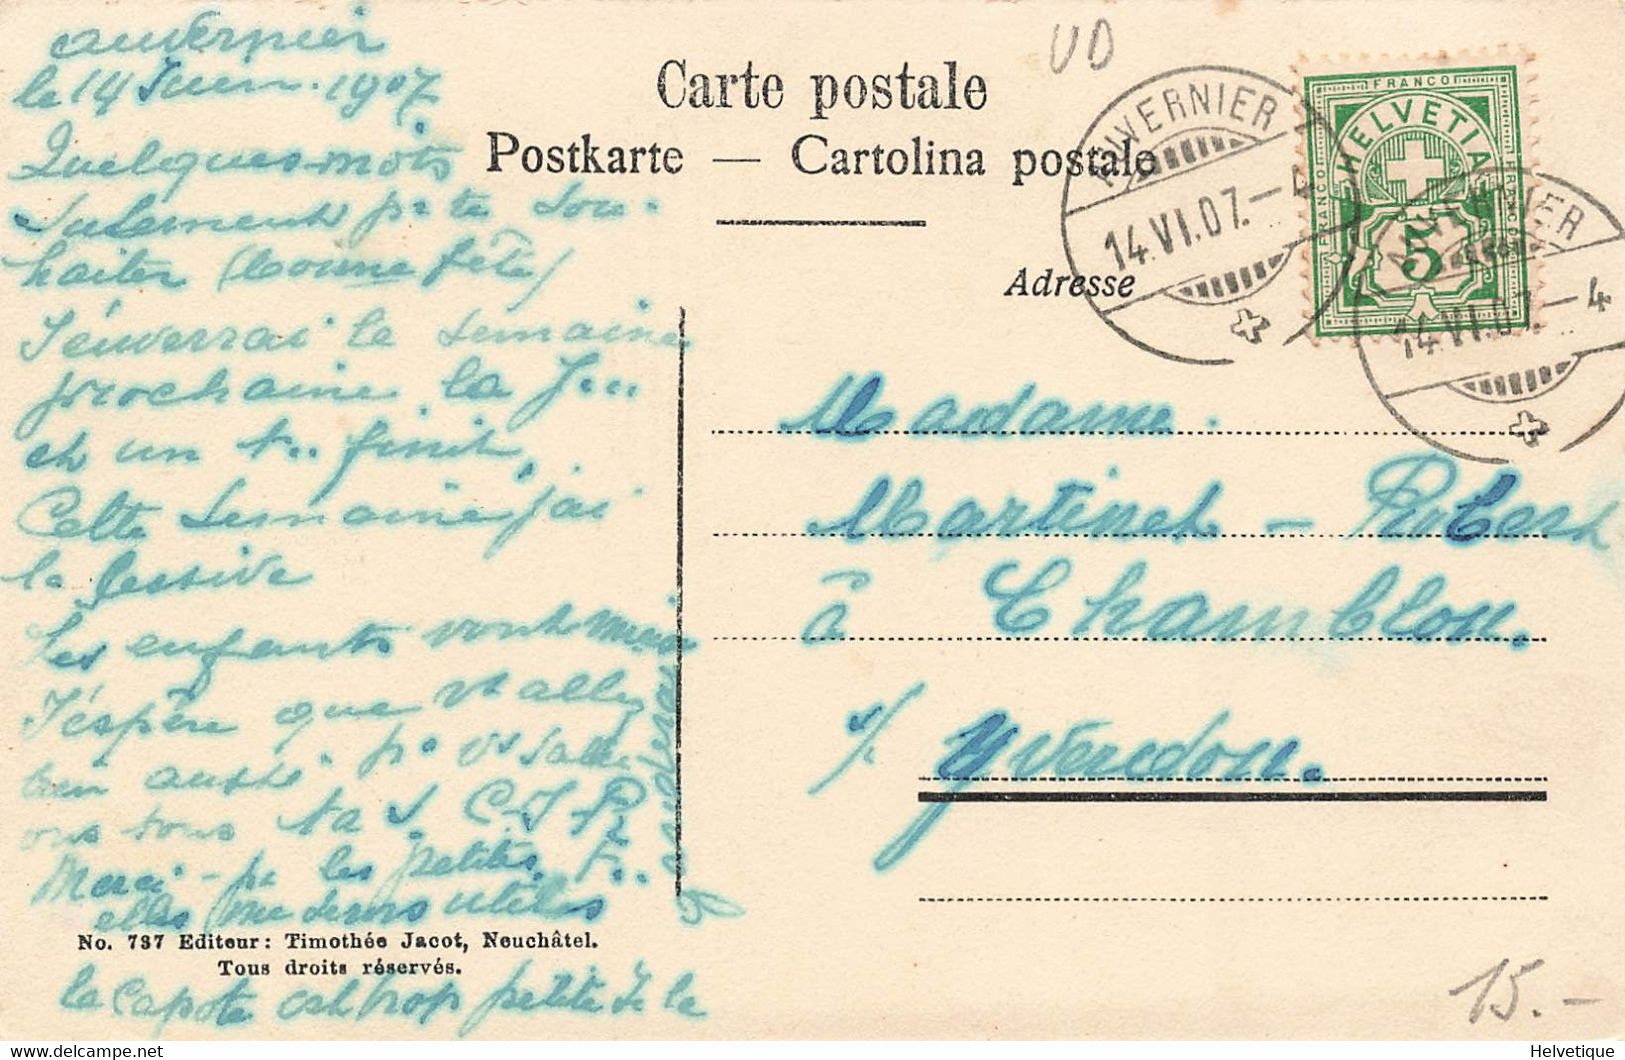 Auvernier
le 14 Juin. 1907
Quelques mots
sulement pr te sou-
haiter (bonne fête)
J'enverrai la semaine
prochaine la J...
et un t.. finit.
Cette semaine j'ai
la lessive
Les enfants vont mieux
J'espère que vs allez
bien aussi. pr vs
ons tous ta s C-J R
Merci - pr les petites F..
elles me seront utiles
la capote est trop petite Je la
Carte postale
Postkarte — Cartolina postale
Adresse
UD
AUVERNIER
14.VI.07.–
AUVERNIER
14.VI.07.–4
FRANCO
HELVETIA
FRANCO
FRANCO
5
Madame.
Martinet – Robert
à Chamblon.
s/ Yverdon.
No. 787 Editeur: Timothée Jacot, Neuchâtel.
Tous droits réservés.
15.-
delcampe.net
Helvetique